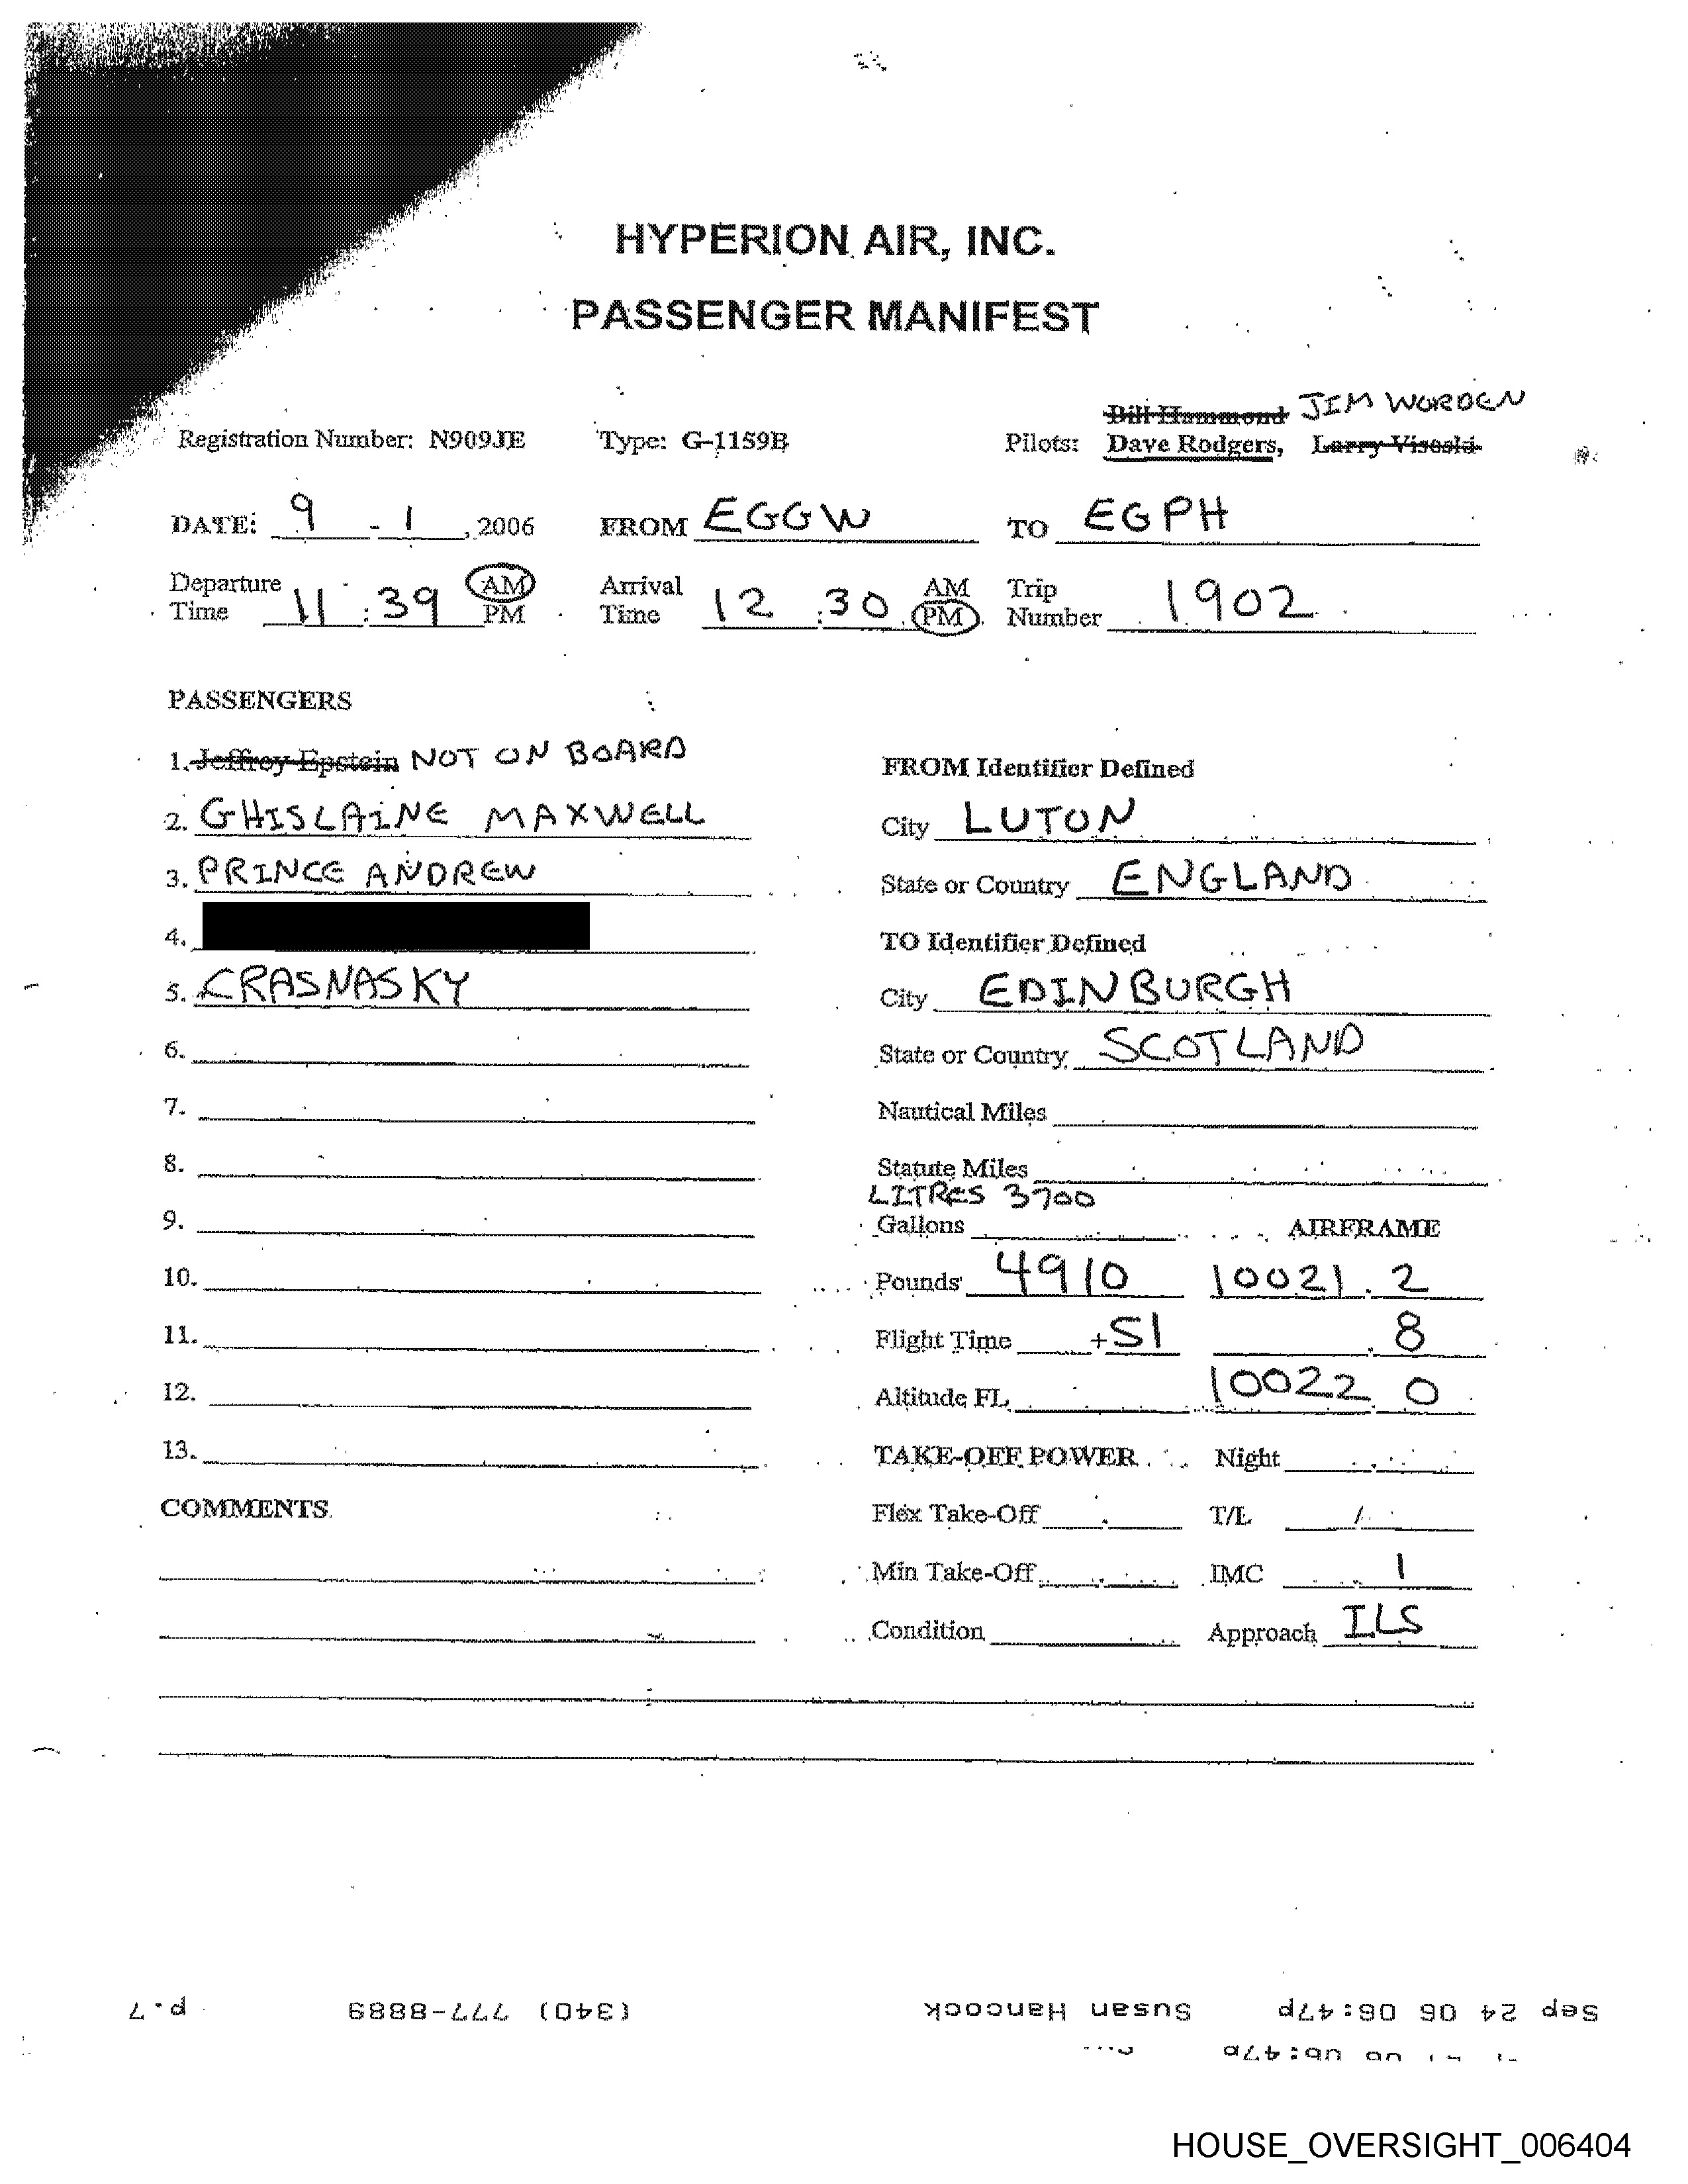 HYPERION AIR, INC.
PASSENGER MANIFEST
Bill Hammond JIM WORDEN
Registration Number: N909JE Type: G-1159B Pilots: Dave Rodgers, Larry Visoski
DATE: 9 - 1, 2006 FROM EGGW TO EGPH
Departure Time 11:39 AM PM Arrival Time 12:30 AM PM Trip Number 1902
PASSENGERS
1. Jeffrey Epstein NOT ON BOARD
FROM Identifier Defined
2. GHISLAINE MAXWELL
City LUTON
3. PRINCE ANDREW
State or Country ENGLAND
4.
TO Identifier Defined
5. CRASNASKY
City EDINBURGH
6.
State or Country SCOTLAND
7.
Nautical Miles
8.
Statute Miles
LITRES 3700
9.
Gallons AIRFRAME
10.
Pounds 4910 10021.2
11.
Flight Time +51 .8
12.
Altitude FL 10022 0
13.
TAKE-OFF POWER Night
COMMENTS
Flex Take-Off T/L /
Min Take-Off IMC 1
Condition Approach ILS
Sep 24 06 06:47p Susan Hancock (340) 777-8889 p.7
HOUSE_OVERSIGHT_006404